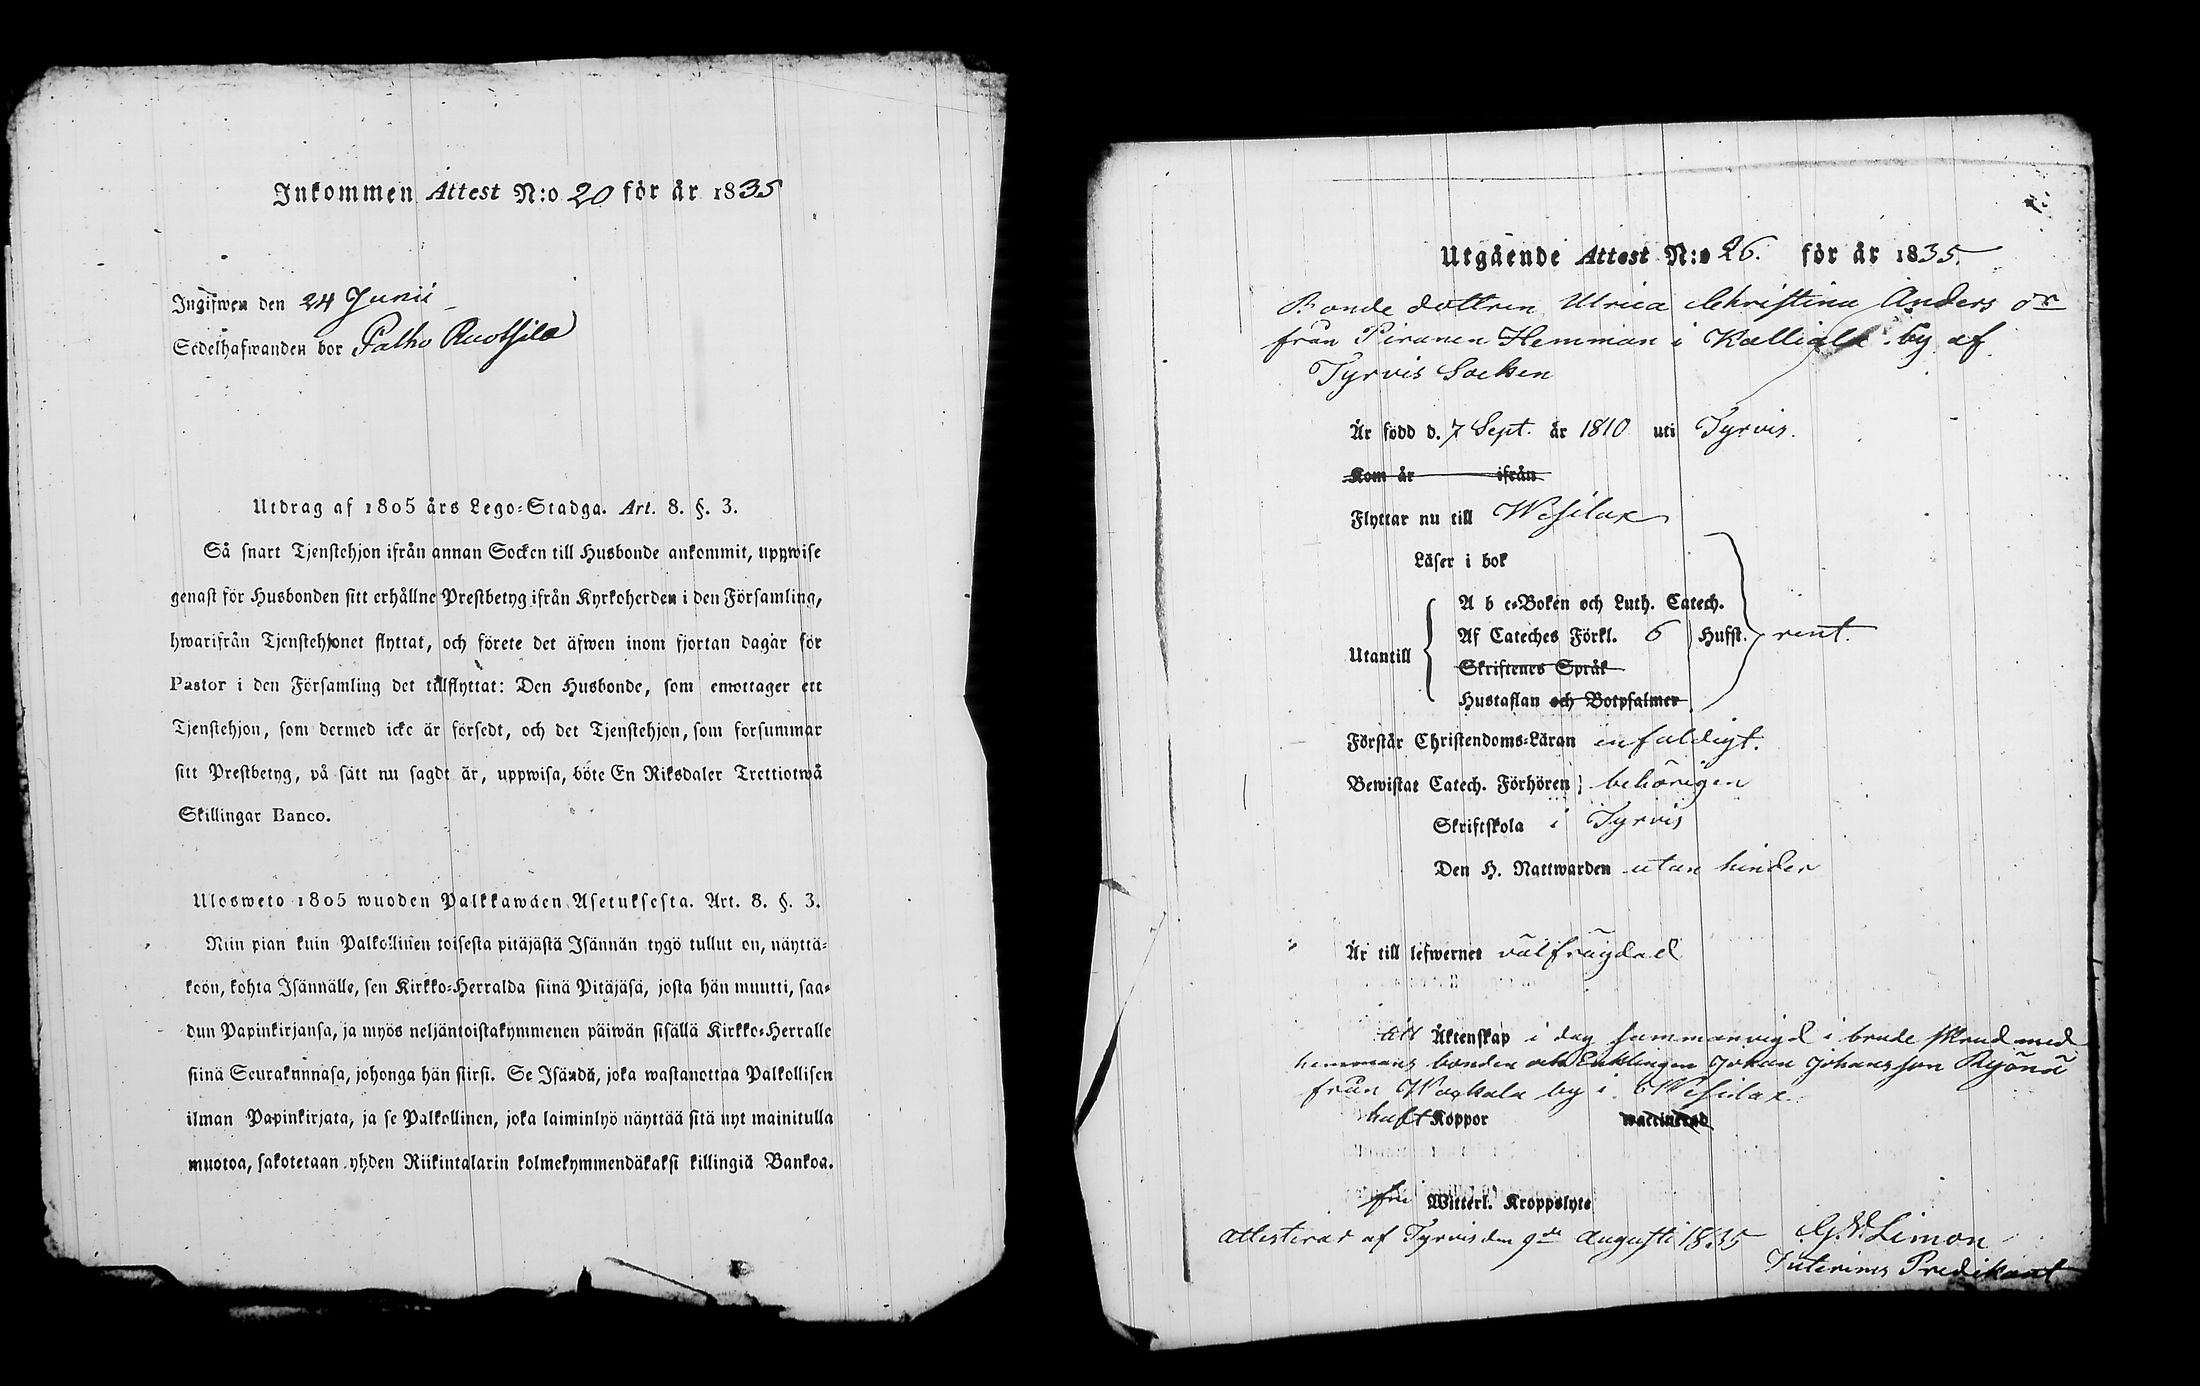 Inkommen Attest N:o 20 för år 1835
Ingifwen den 24 Junii
Sedelhafwanden bor Palho Ruotsila
Utdrag af 1805 års Lego-Stadga. Art. 8. §. 3.
Så snart Tjenstehjon ifrån annan Socken till Husbonde ankommit, uppwise
genast för Husbonden sitt erhållne Prestbetyg ifrån Kyrkoherden i den Församling,
hwarifrån Tjenstehjonet flyttat, och förete det äfwen inom fjortan dagar för
Pastor i den Församling det tillflyttat: Den Husbonde, som emottager ett
Tjenstehjon, som dermed icke är försedt, och det Tjenstehjon, som försummar
sitt Prestbetyg, på sätt nu sagdt är, uppwisa, böte En Riksdaler Trettiotwå
Skillingar Banco.
Ulosweto 1805 wuoden Palkkawäen Asetuksesta. Art. 8. §. 3.
Niin pian kuin Palkollinen toisesta pitäjästä Isännän tygö tullut on, näyttä-
köön, kohta Isännälle, sen Kirkko-Herralda siinä Pitäjäsä, josta hän muutti, saa-
dun Papinkirjansa, ja myös neljäntoistakymmenen päiwän sisällä Kirkko-Herralle
siinä Seurakunnasa, johonga hän siirsi. Se Isändä, joka wastanottaa Palkollisen
ilman Papinkirjata, ja se Palkollinen, joka laiminlyö näyttää sitä nyt mainitulla
muotoa, sakotetaan yhden Riikintalarin kolmekymmendäkaksi killingiä Bankoa.
Utgående Attest N:o 26. för år 1835.
Bonde dottren Ulrica Christina Anders dr
från Piranen Hemman i Kalliala by af
Tyrvis Socken
Är född d. 7 Sept. år 1810 uti Tyrvis.
Kom år ifrån
Flyttar nu till Wesilax
Läser i bok
A b c-Boken och Luth. Catech.
Af Cateches Förkl. 6 Hufst. rent.
Utantill
Skriftenes Språk
Hustaflan och Botpsalmer
Förstår Christendoms-Läran enfaldigt.
Bewistat Catech. Förhören behörigen
Skriftskola i Tyrvis
Den H. Nattwarden utan hinder
Är till lefwernet välfrägdad
till Äktenskap i dag sammanvigd i brude skrud med
hemmans bonden och Enklingen Johan Johansson
från by i Wesilax
haft Koppor waccinerad
fri Witterl. Kroppslyte
Attesterar af Tyrvis den 9de Augusti 1835 G. W. Limon
Interims Predikant